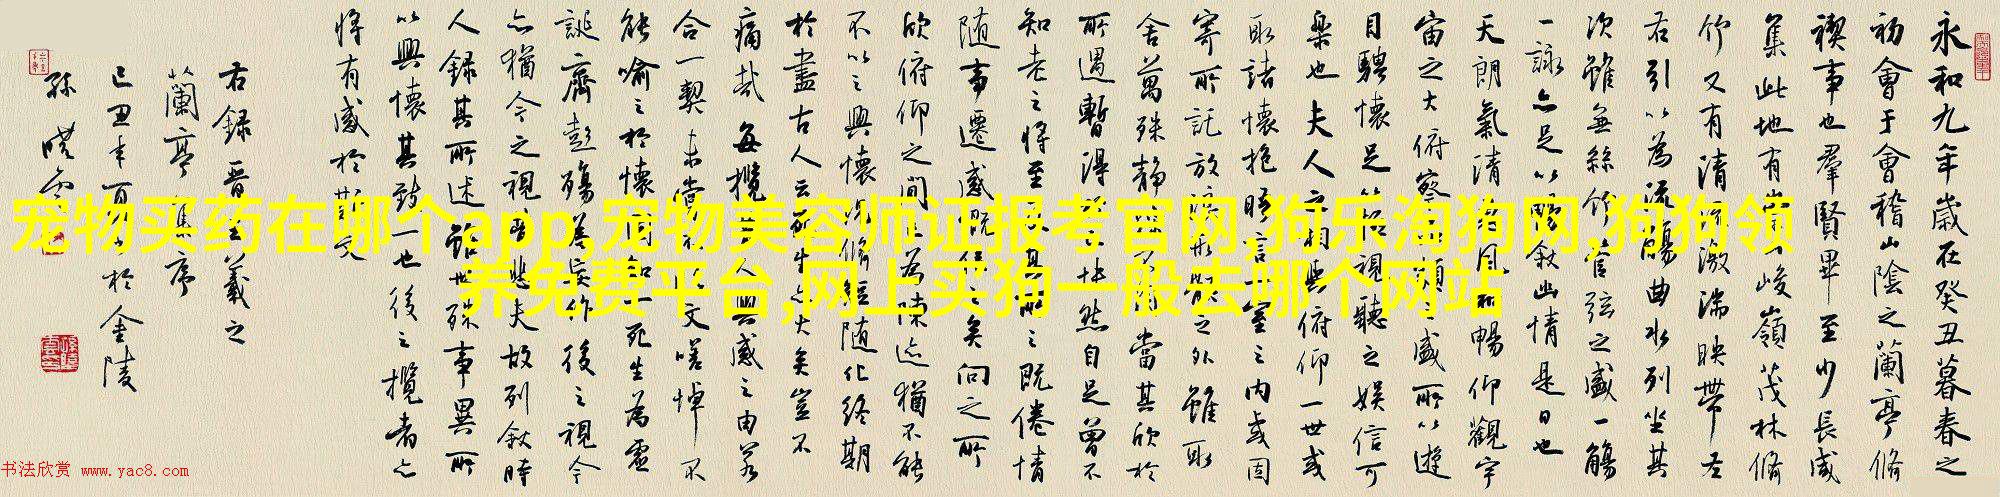 宠物买药在哪个app,宠物美容师证报考官网,狗乐淘狗网,狗狗领
养免费平台,网上买狗一般去哪个网站
永和九年歲在癸丑暮春之
初會于會稽山陰之蘭亭脩
禊事也羣賢畢至少長咸
集此地有崇山峻嶺茂林脩
竹又有清流激湍映帶左
右引以為流觴曲水列坐其
次雖無絲竹管弦之盛一觴
一詠亦足以暢敘幽情是日也
天朗氣清惠風和暢仰觀宇
宙之大俯察品類之盛所以遊
目騁懷足以極視聽之娛信可
樂也夫人之相與俯仰一世或
取諸懷抱晤言一室之內或因
寄所託放浪形骸之外雖取
舍萬殊靜躁不同當其欣於
所遇暫得於己快然自足曾不
知老之將至及其所之既倦情
隨事遷感慨係之矣向之所
欣俯仰之間以為陳迹猶不能
不以之興懷況脩短隨化終期
於盡古人云死生亦大矣豈不
痛哉每攬昔人興感之由若
合一契未嘗不臨文嗟悼不
能喻之於懷固知一死生為虛
誕齊彭殤為妄作後之視今
亦猶今之視昔悲夫故列敘時
人錄其所述雖世殊事異所
以興懷其致一也後之攬者亦
將有感於斯文
右錄晉王羲之
蘭亭集序
己丑年於金陵
孫曉雲
书法欣赏 www.yac8.com